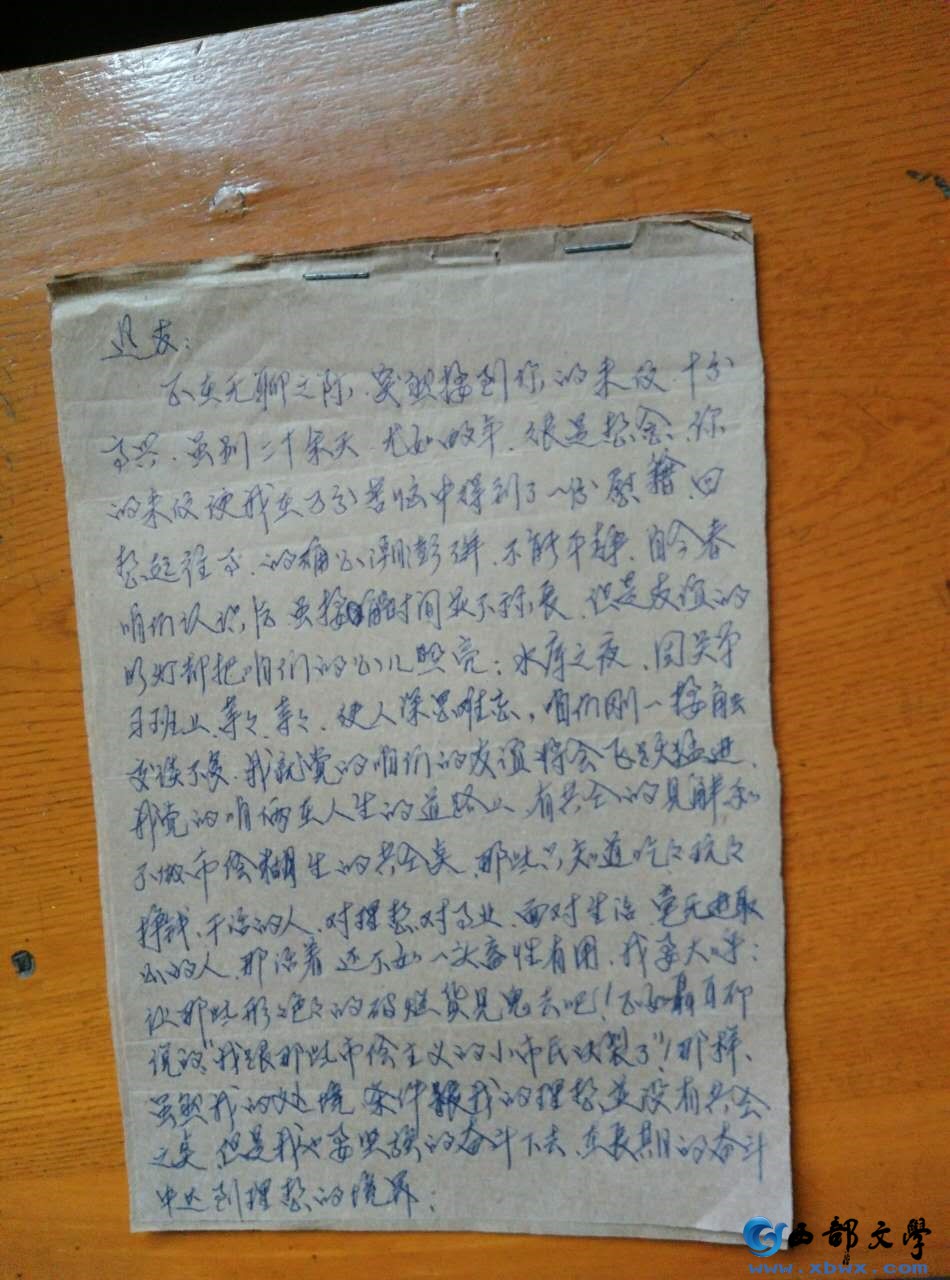 友：
正在无聊之际，突然接到你的来信，十分
高兴，虽别二十余天，尤如数年，很是想念，你
的来信使我在万分苦恼中得到了一份慰藉，回
想起往事，的确心潮澎湃，不能平静，自今春
咱们认识后，虽接触时间并不称长，但是友谊的
明灯却把咱们的心儿照亮；水库之夜，团关
习班上，亲亲，使人深思难忘，咱们刚一接触
交谈不多，我就觉的咱们的友谊将会飞跃猛进，
我觉的咱俩在人生的道路上，有共全的见解和
不做市侩糊生的共全点，那些只知道吃吃玩玩
挣钱，干活的人，对理想，对事业，面对生活，毫无进取
心的人，那活着还不如一头畜性有用，我要大呼：
让那些形形色色的破烂货见鬼去吧！！正如聂耳所
说的，“我跟那些市侩主义的小市民决裂了”！那样，
虽然我的处境，条件跟我的理想并没有共全
之点，但是我也要坚强的奋斗下去，在长期的奋斗
中达到理想的境界；
西部文学
www.xbwx.com